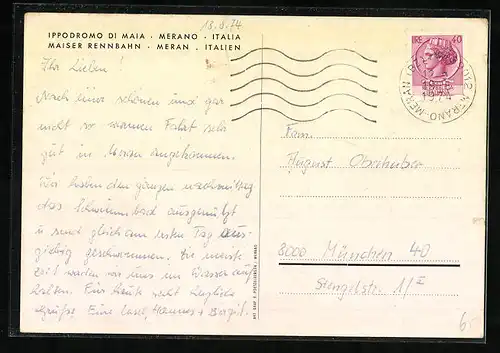 13.8.74
IPPODROMO DI MAIA · MERANO · ITALIA
MAISER RENNBAHN · MERAN · ITALIEN
Ihr Lieben!
Nach einer schönen und gar
nicht so warmen Fahrt sehr
gut in Meran angekommen.
Wir haben den ganzen nachmittag
das Schwimmbad ausgenützt
u sind gleich am ersten Tag aus-
giebig geschwommen. Die meiste
Zeit werden wir uns im Wasser auf
halten. Für heute recht herzliche
Grüße Eure Hannes + Birgit.
40
MERANO MERAN
Fam.
August Obethuber
8000 München 40
Stengelstr. 1/I
6.-